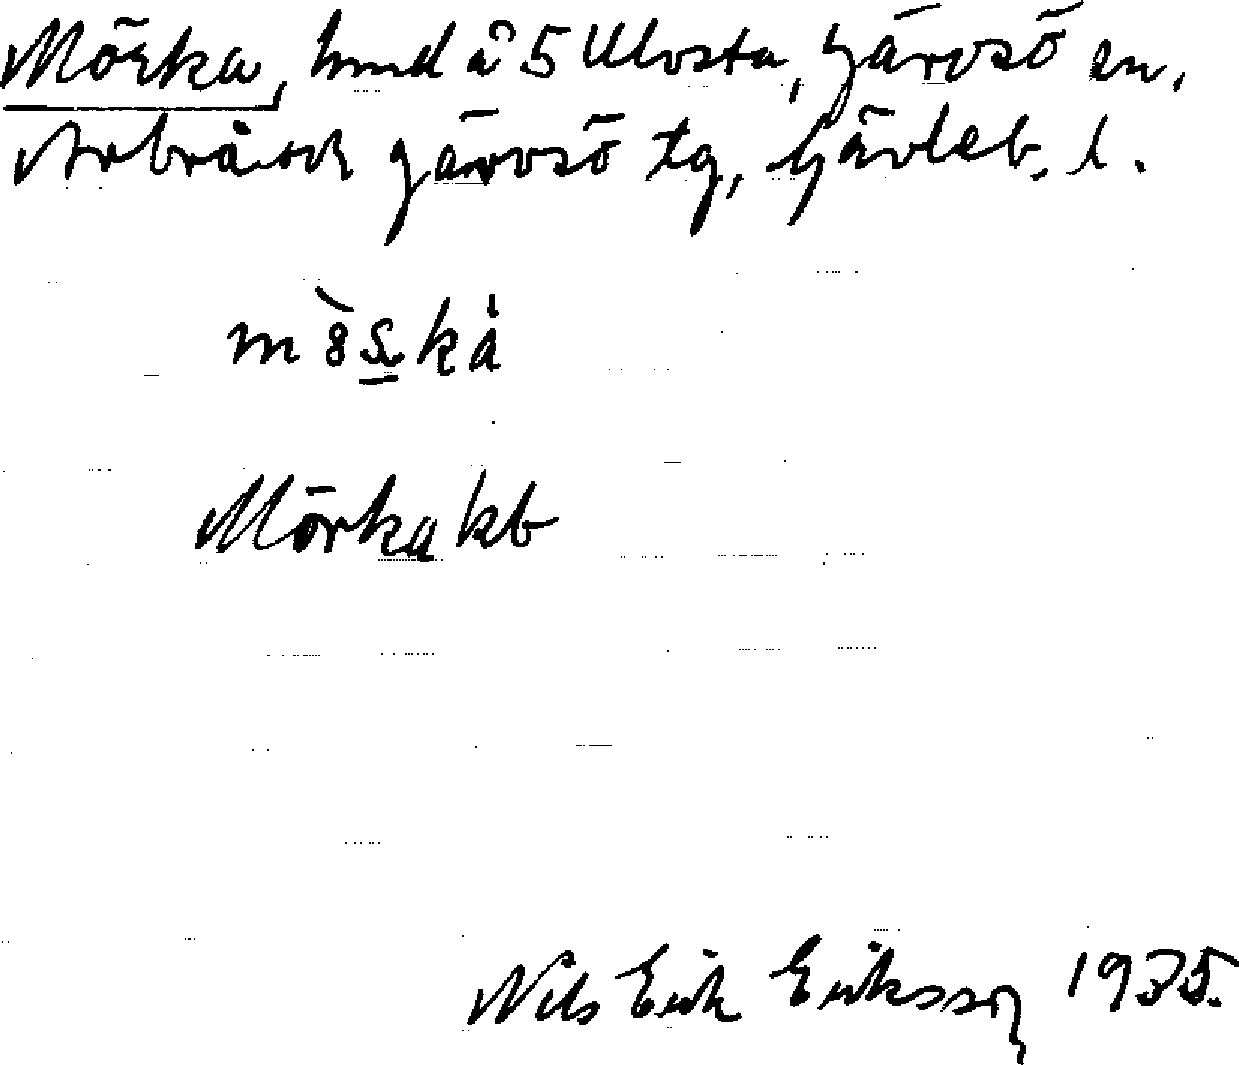 Mörka, hmd å 5 Ulvsta, Järvsö sn,
Arbrå och Järvsö tg, Gävleb. l.
Mörka kb
Nils Erik Eriksson 1935.